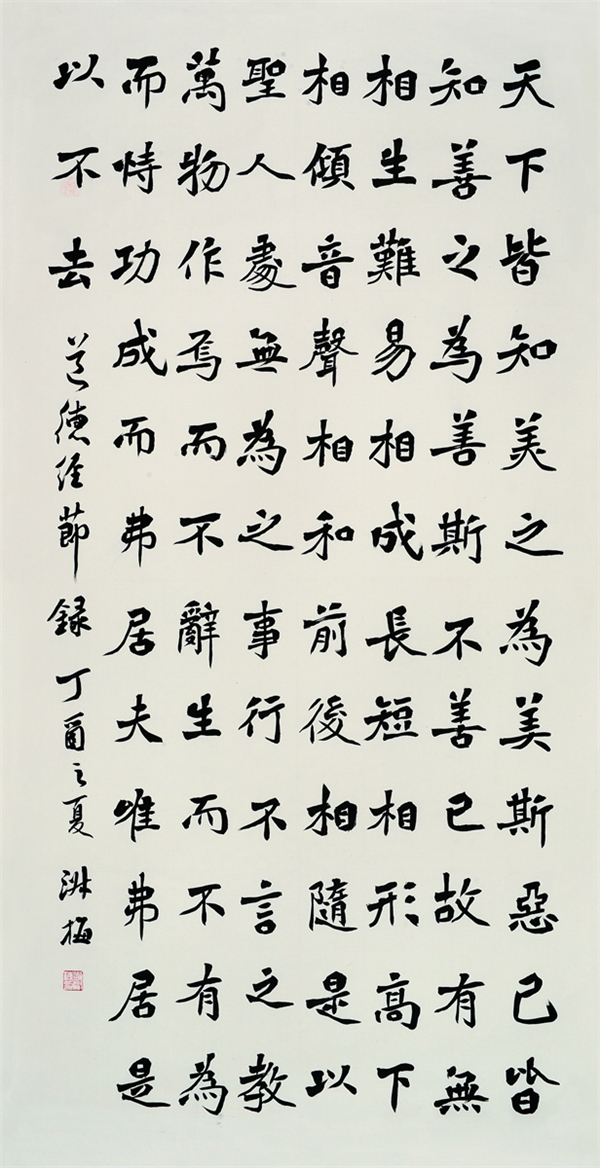 天下皆知美之為美斯惡已皆
知善之為善斯不善已故有無
相生難易相成長短相形高下
相傾音聲相和前後相隨是以
聖人處無為之事行不言之教
萬物作焉而不辭生而不有為
而恃功成而弗居夫唯弗居是
以不去 道德經節錄丁酉之夏 梅